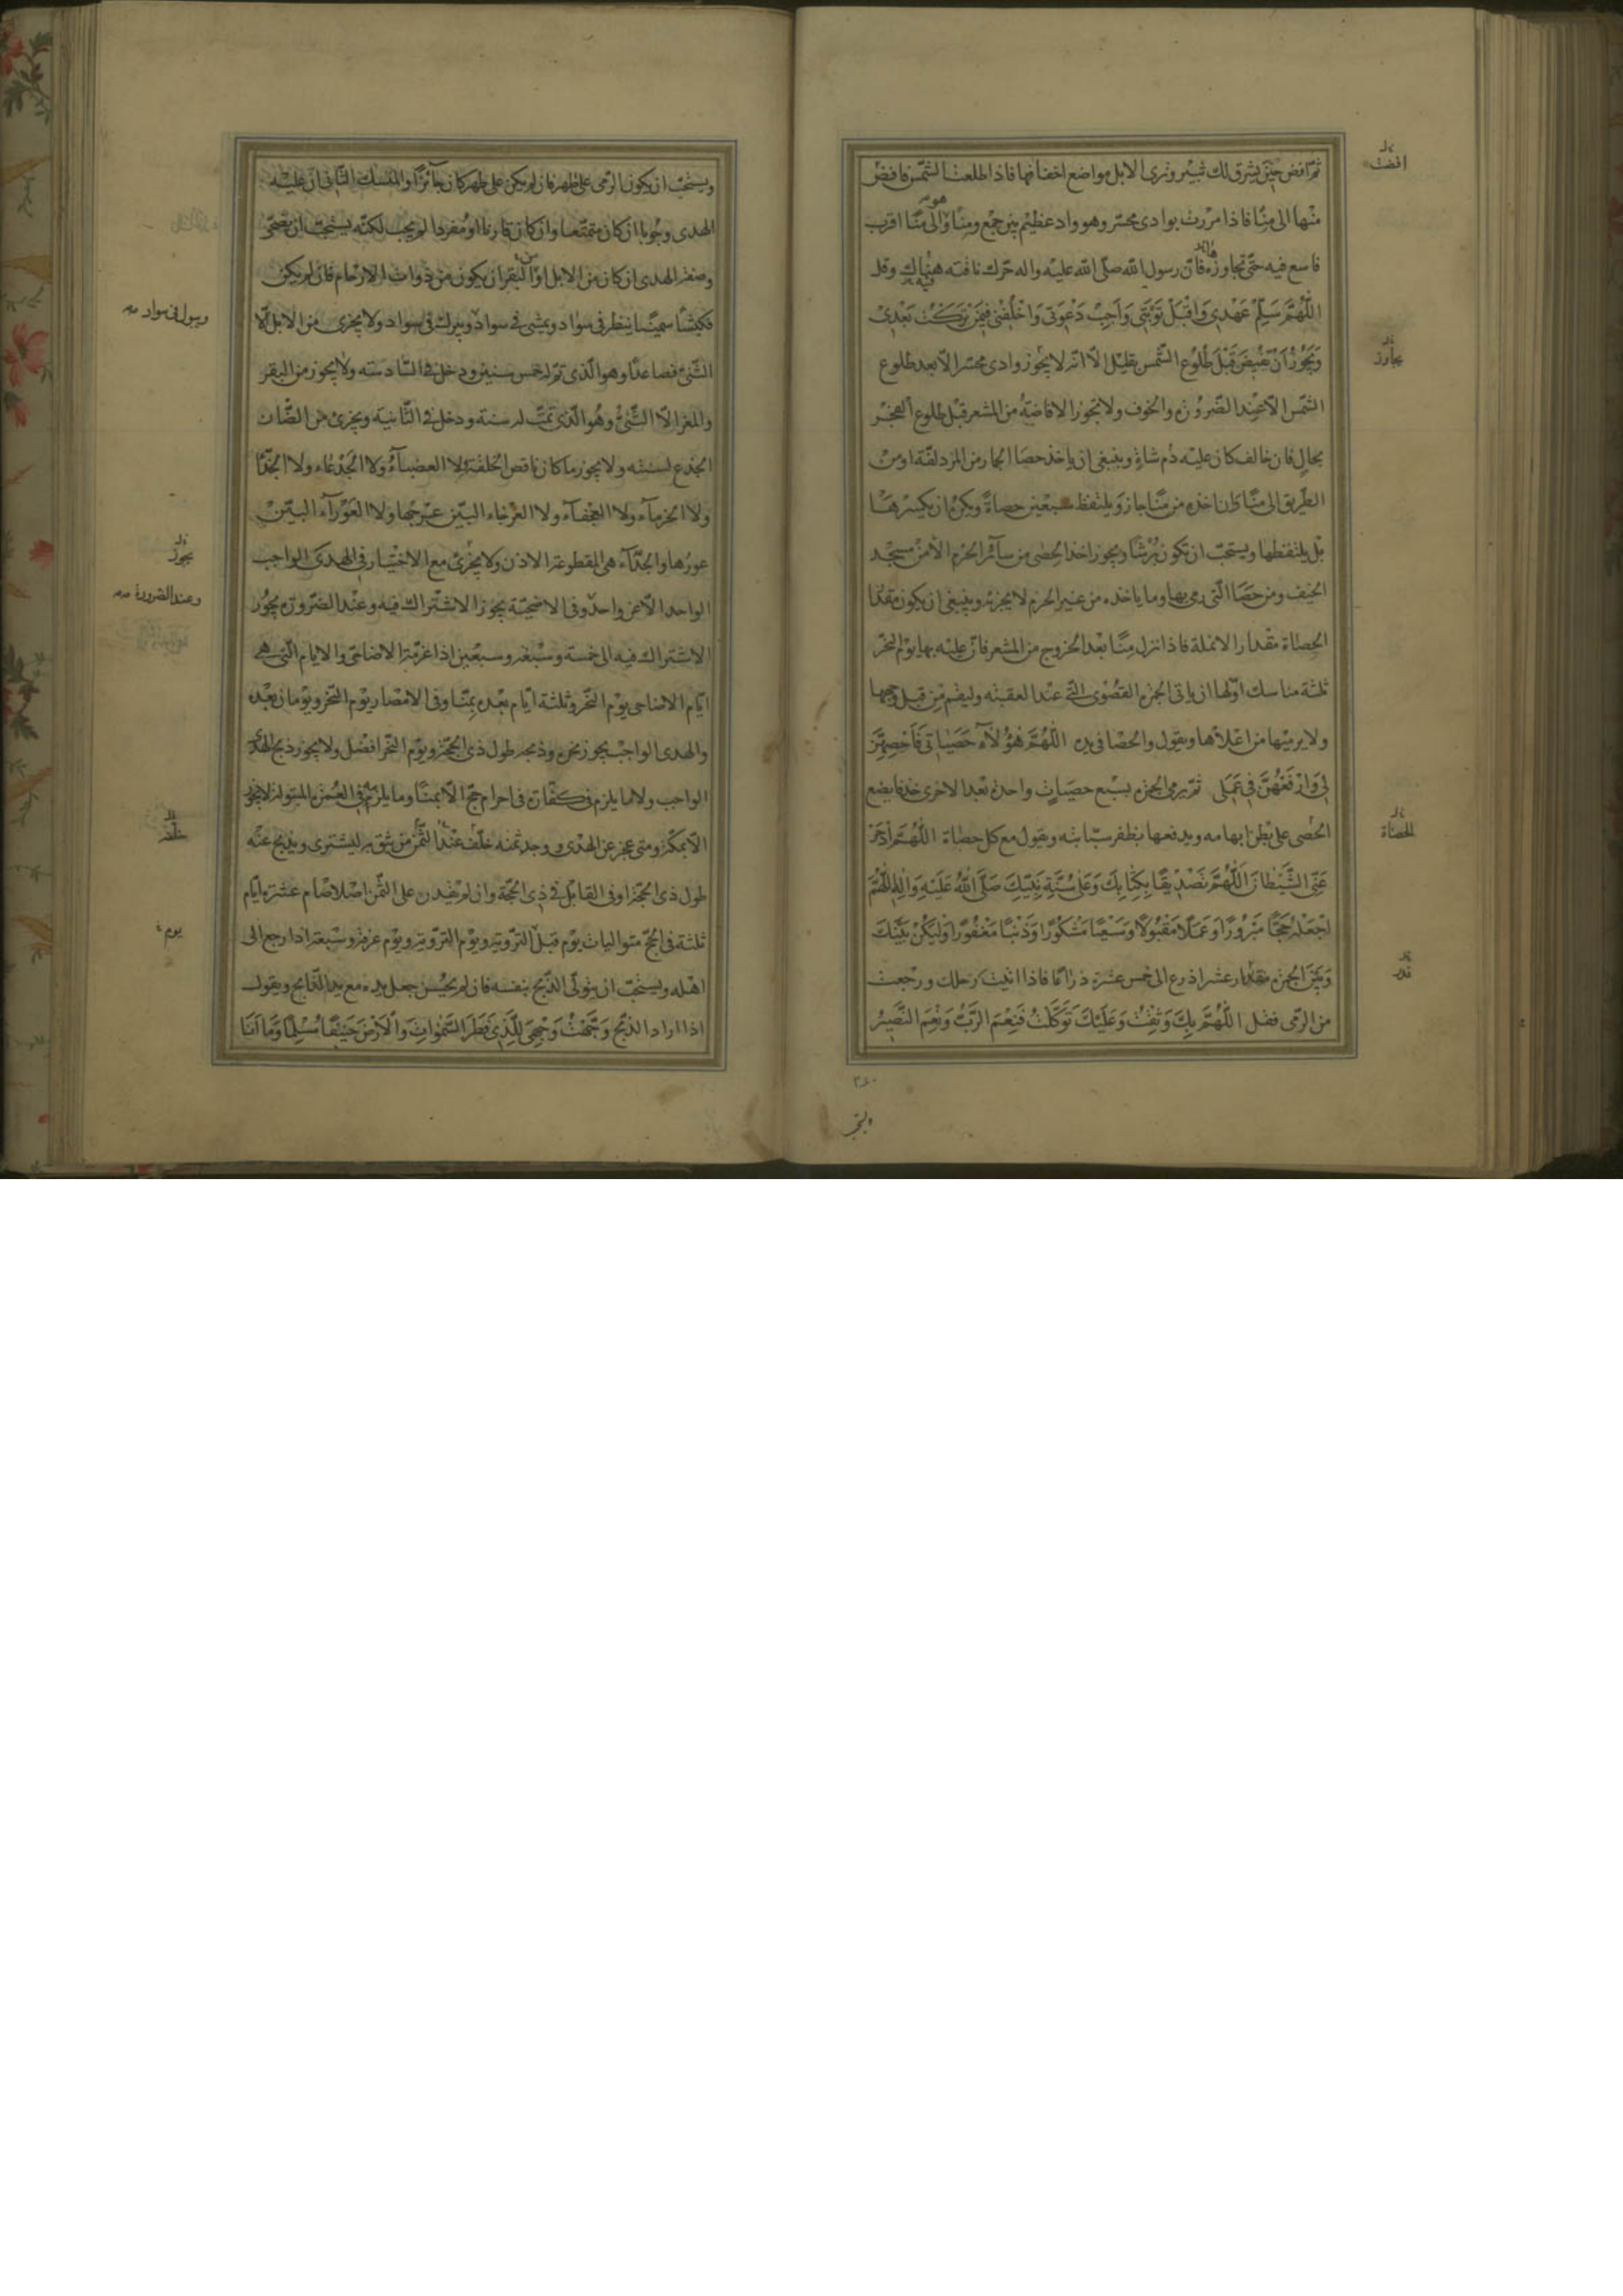 ثمّ افض حين يشرق لك ثبير وترى الابل مواضع اخفافها فاذا طلعت الشمس فافض
منها الى منًا فاذا مررت بوادى محسّر وهو واد عظيم بين جمع ومنًا وهو الى منًا اقرب
فاسع فيه حتّى تجاوزه فانّ رسول الله صلّى الله عليه واله حرّك ناقته هناك وقل
اللّهُمَّ سَلِّمْ عَهْدِى وَاقْبَلْ تَوْبَتَى وَاَجِبْ دَعْوَتى وَاخْلُفْنى فيمَنْ تَرَكْتُ بَعْدى
وَيَجُوزُ اَنْ تفيضَ قَبْلَ طُلُوعِ الشّمسِ بقليل الّا انّه لا يجُوز وادى محسّر الّا بعد طلوع
الشمس الّا عند الضّرورة والخوف ولا تجوز الافاضة من المشعر قبل طلوع الفجر
بحالٍ فان خالف كان عليه دم شاةٍ وينبغى ان ياخذ حصا الجمار من المزدلفة او من
الطّريق الى منًا وان اخذه من منًا جاز ويلتقط سبعين حصاةً ويكره ان يكسرهَا
بل يلتقطها ويستحبّ ان تكون بُرْشًا ويجوز اخذ الحصى من سآئر الحرم الّا من مسجد
الخيف ومن حصَا الّتى رمى بها وما ياخذه من غير الحرم لا يجزيه وينبغى ان يكون مقدَار
الحصاة مقدار الانملة فاذا نزل منًا بعد الخروج من المشعر فانّ عليه بها يوم النحر
ثلثة مناسك اوّلها ان ياتى الجمرة القُصْوى الّتى عند العقبة وليقم من قبل وجهها
ولا يرميها من اعلاها ويقول والحصا فى يده اللّهُمَّ هؤُلآءِ حَصَياتى فَاَحْصِهِنَّ
لى وَارْفَعْهُنَّ فى عَمَلى ثمّ يرمى الجمرة بسبع حصَياتٍ واحدة بعد الاخرى خذفا يضع
الحصى على بطن ابهامه ويدفعها بظفر سبّابته ويقول مع كل حصاة اللّهُمَّ ادْحَرْ
عَنِّى الشَّيْطانَ اللّهُمَّ تَصْديقًا بِكِتابِكَ وَعَلى سُنَّةِ نَبِيِّكَ صَلَّى اللهُ عَلَيْهِ وَالِهِ اللّهُمَّ
اجْعَلْهُ حَجًّا مَبْرُورًا وَعَمَلًا مَقْبُولًا وَسَعْيًا مَشْكُورًا وَذَنْبًا مَغْفُورًا وَلْيَكُنْ بَيْنَكَ
وَبَيْنَ الجمرة مقدار عشر اذرع الى خمس عشرة ذراعًا فاذا اتيت رحلك ورجعت
من الرّمى فقل اللّهُمَّ بِكَ وَثِقْتُ وَعَلَيْكَ تَوَكَّلْتُ فَنِعْمَ الرَّبُّ وَنِعْمَ النَّصيرُ
افضت
تجاوز
الحصاة
قدر
ويستحبّ ان يكون الرّمى على طهر فان لم يكن على طهر كان جآئزًا والمنسك الثّانى انّ عليه
الهدى وجُوبا ان كان متمتّعا وان كان قارنا او مُفردا لم يجب لكنّه يستحبّ ان يضحّى
وصفة الهدى ان كان من الابل او من البقر ان يكون من ذوات الارحام فان لم يكن
فكبشًا سمينًا ينظر فى سواد ويمشى فى سواد ويبرك فى سواد ولا يجزى من الابل الّا
الثّنىّ فصاعدًا وهو الّذى تمّ له خمس سنين ودخل فى السّادسة ولا يجوز من البقر
والمعز الّا الثّنىّ وهُو الّذى تمّت له سنة ودخل فى الثّانية ويجزى من الضّان
الجذع لسنته ولا يجوز ما كان ناقص الخلقة ولا العضبآء ولا الجدعاء ولا الجذّا
ولا الخرمآء ولا العجفآء ولا العرجاء البيّن عرجها ولا العَوْرآء البيّن
عورها والجذّآء هى المقطوعة الاذن ولا يجزى مع الاختيار فى الهدى الواجب
الواحد الّا عن واحد وفى الاضحيّة يجوز الاشتراك فيه وعند الضّرورة يجوز
الاشتراك فيه الى خمسة وسبعة وسبعين اذا عزّت الاضاحى والايام الّتى هى
ايّام الاضاحى يوم النّحر وثلثة ايّام بعده بمنًا وفى الامصار يوم النّحر ويومان بعده
والهدى الواجب يجوز نحره وذبحه طول ذى الحجّة ويوم النّحر افضل ولا يجوز ذبح الهدى
الواجب ولا ما يلزم فى كفّارة فى احرام حجّ الّا بمنًا وما يلزم فى العُمرة المبتولة لا يجوز
الّا بمكّة ومتى عجز عن الهدى ووجد ثمنه خلّف عند الثمن من يثق به ليشترى ويذبح عنه
طول ذى الحجّة او فى القابل فى ذى الحجّة وان لم يقدر على الثّمن اصلا صام عشرة ايّام
ثلثة فى الحجّ متواليات يوم قبل التّروية ويوم التّروية ويوم عرفة وسبعة اذا رجع الى
اهله ويستحبّ ان يتولّى الذّبح بنفسه فان لم يحسن جعل يده مع يد الذّابح ويقول
اذا اراد الذّبح وَجَّهْتُ وَجْهِىَ لِلَّذى فَطَرَ السَّمواتِ وَالْاَرْضَ حَنيفًا مُسْلِمًا وَمَا اَنَا
ويبول فى سواد
يجوز
وعند الضرورة
خلّفه
يوم